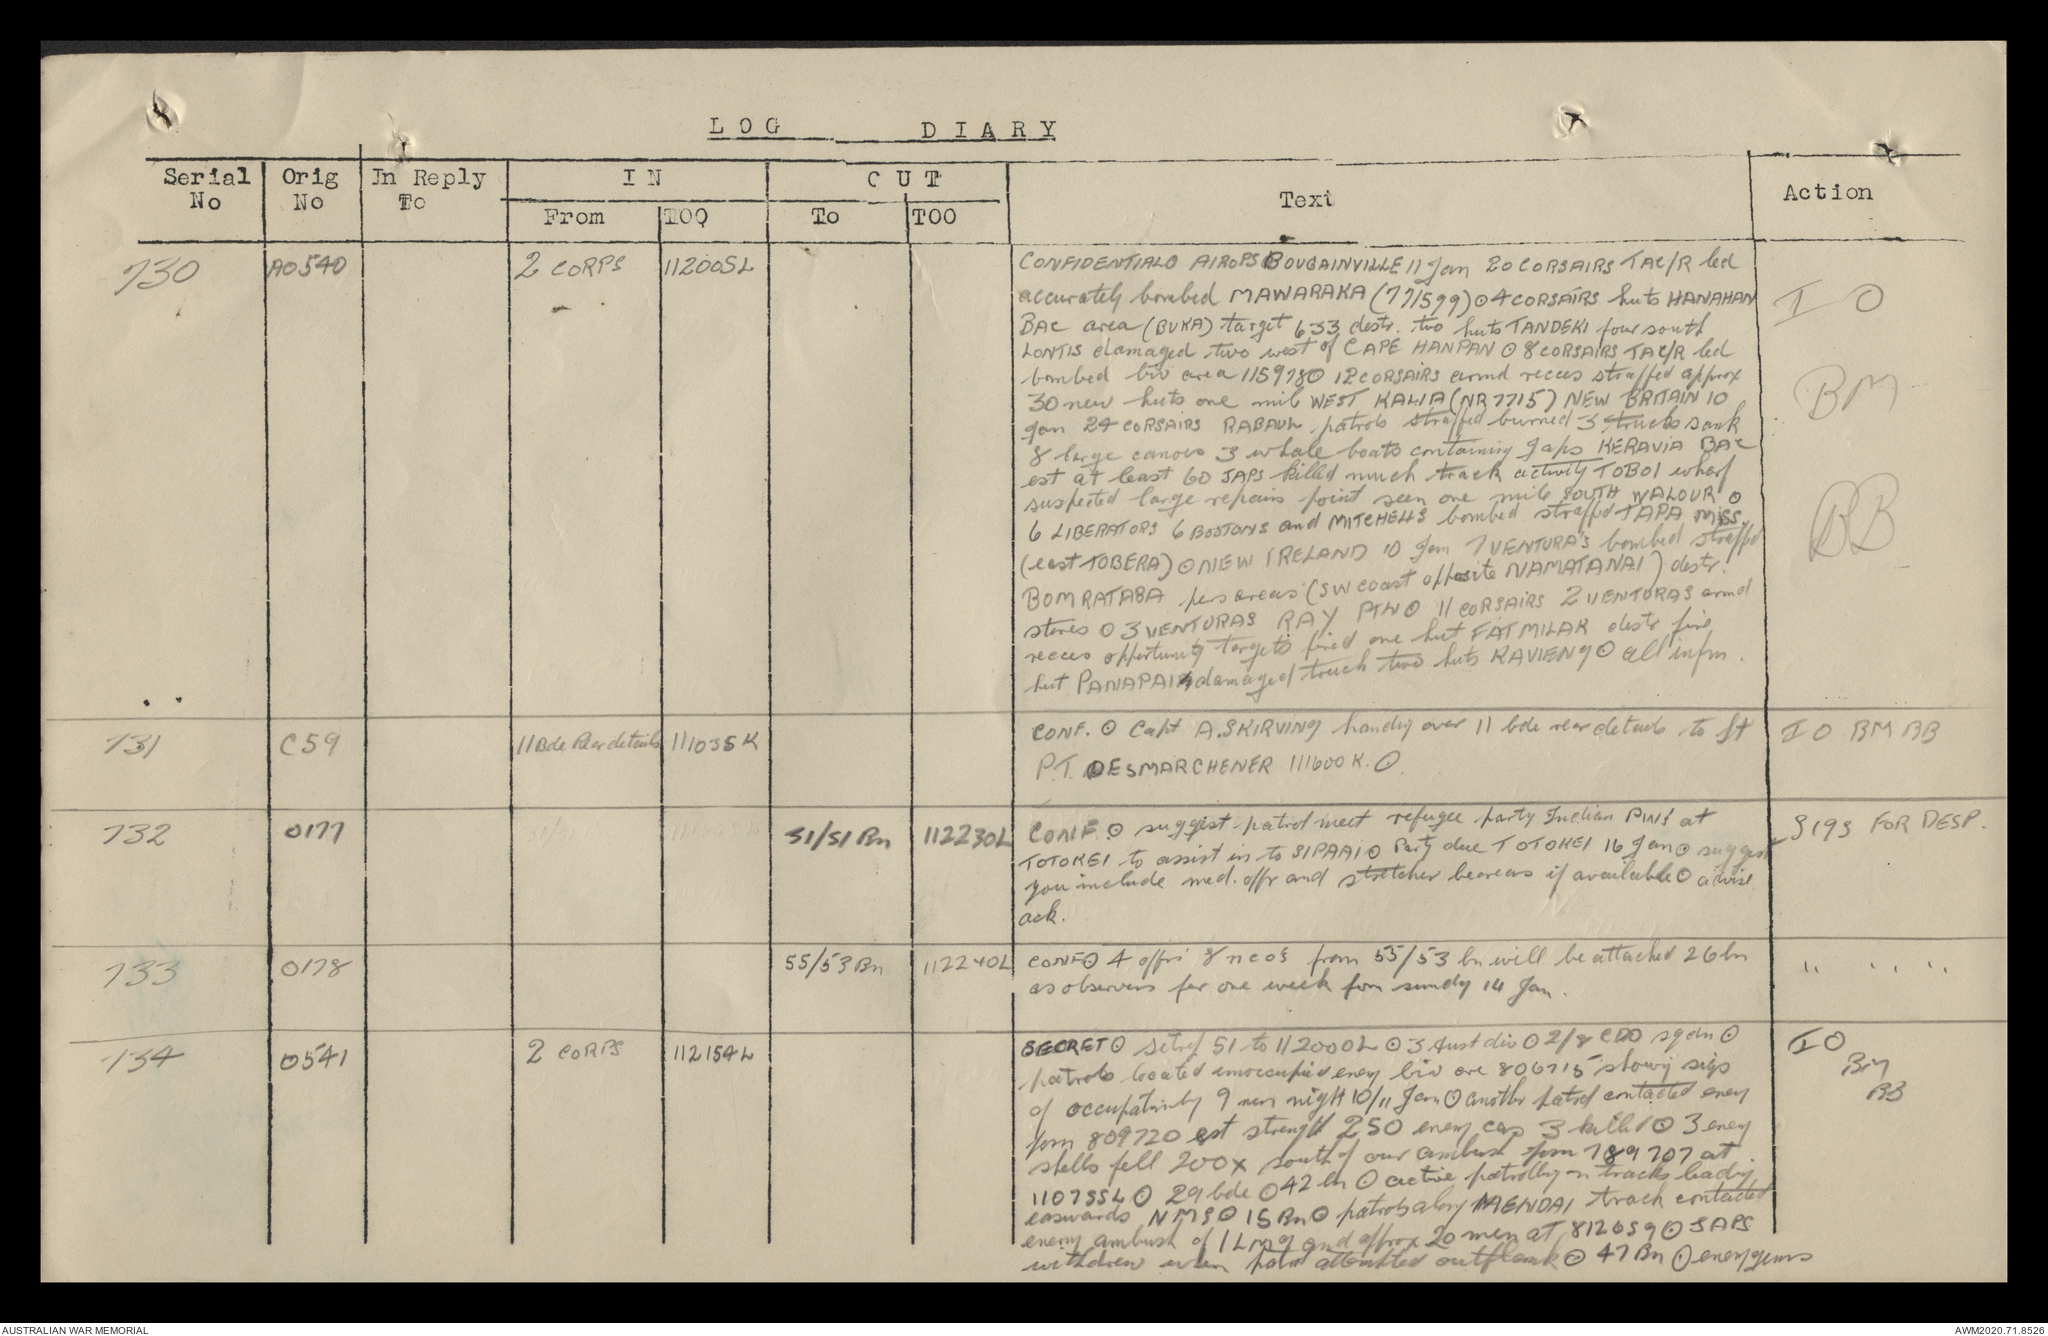 LOG DIARY
Serial No Orig No In Reply To IN OUT Text Action
From TOO To TOO
730 AO540 2 CORPS 112005L CONFIDENTIAL⊙ AIROPS BOUGAINVILLE 11 Jan 20 CORSAIRS TAC/R led
accurately bombed MAWARAKA (771599) ⊙ 4 CORSAIRS huts HANAHAN I O
BAC area (BUKA) target 633 destr. two huts TANDEKI four south
LONTIS damaged two west of CAPE HANPAN ⊙ 8 CORSAIRS TAC/R led
bombed biv area 115978⊙ 12 CORSAIRS armd recces straffed approx
30 new huts one mile WEST KALIA (NR 7715) NEW BRITAIN 10 BM
Jan 24 CORSAIRS RABAUL patrols straffed burned 3 trucks sank
8 large canoes 3 whale boats containing Japs KERAVIA BAC
est at least 60 JAPS killed much track activity TOBOI wharf
suspected large repairs point seen one mile SOUTH WALOUR ⊙
6 LIBERATORS 6 BOSTONS and MITCHELLS bombed straffed TAPA MISS. BB
(east TOBERA) ⊙ NEW IRELAND 10 Jan 7 VENTURA'S bombed straffed
BOM RATABA pers areas (SW coast opposite NAMATANAI) destr.
stores ⊙ 3 VENTURAS RAY PTN ⊙ 11 CORSAIRS 2 VENTURAS armd
recces opportunity targets fired one hut FATMILAK destr five
hut PANAPAI damaged truck two huts KAVIENG ⊙ all infm.
731 C59 11 Bde Rear details 111035K CONF. ⊙ Capt A. SKIRVING handing over 11 bde rear details to Lt I O BM BB
P.T. DESMARCHENER 111600K. ⊙
732 0177 31/51 Bn 112230L CONF ⊙ suggest patrol meet refugee party Indian PWs at S193 FOR DESP.
TOTOKEI to assist in to SIPAAI⊙ Party due TOTOKEI 16 Jan⊙ suggest
you include med. offr and stretcher bearers if available⊙ advise
ack.
733 0178 55/53 Bn 112240L CONF⊙ 4 offrs 8 ncos from 55/53 bn will be attached 26 bn " " "
as observers for one week from sunday 14 Jan.
734 0541 2 CORPS 112154L SECRET⊙ sitrep 51 to 112000L ⊙ 3 Aust div ⊙ 2/8 CDO sqdn ⊙ I O
patrols located unoccupied enemy biv are 806715 showing sigs BM
of occupation by 9 men night 10/11 Jan ⊙ another patrol contacted enemy BB
posn 809720 est strength 250 enemy cas 3 killed ⊙ 3 enemy
shells fell 200x south of our ambush posn 789707 at
110735L ⊙ 29 bde ⊙ 42 bn ⊙ active patrolling on tracks leading
easwards NMS⊙ 15 Bn⊙ patrols along MENDAI track contacted
enemy ambush of 1 LMG and approx 20 men at 812659 ⊙ JAPS
withdrew when patrol attempted outflank ⊙ 47 Bn ⊙ enemy guns
AUSTRALIAN WAR MEMORIAL AWM2020.71.8526